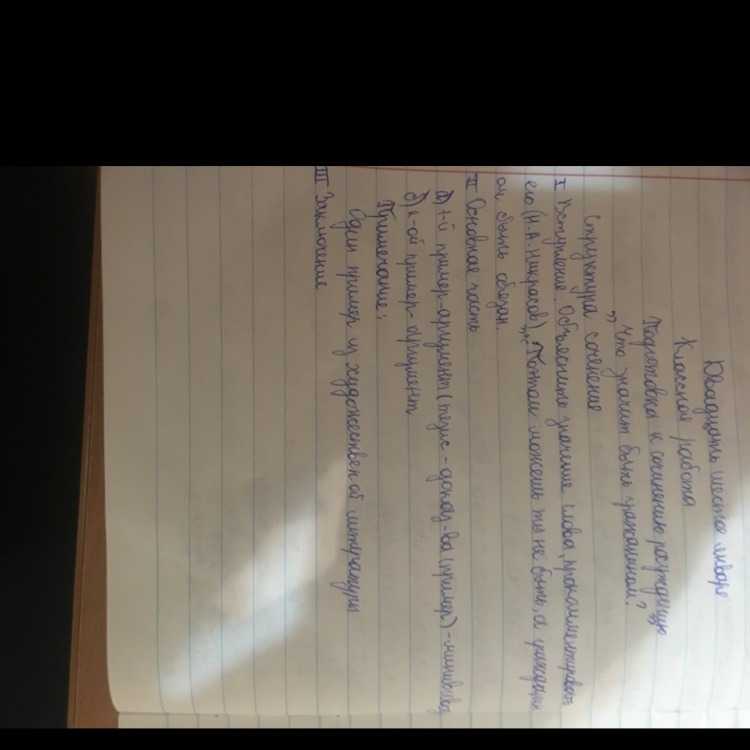 Двадцать шестое января
Классная работа
Подготовка к сочинению рассуждению
"Что значит быть гражданином?
Структура сочинение
I Вступление. Объясните значение слова, прокомментировать
его (Н.А. Никрасов) "Поэтом можешь ты не быть, а гражданин
ом быть обязан.
II Основная часть
а) 1-й пример-аргумент (тезис - доказ-ва (пример) -
б) к-ой пример - аргумент
Примечание:
Один пример из художественной литературы
III Заключение